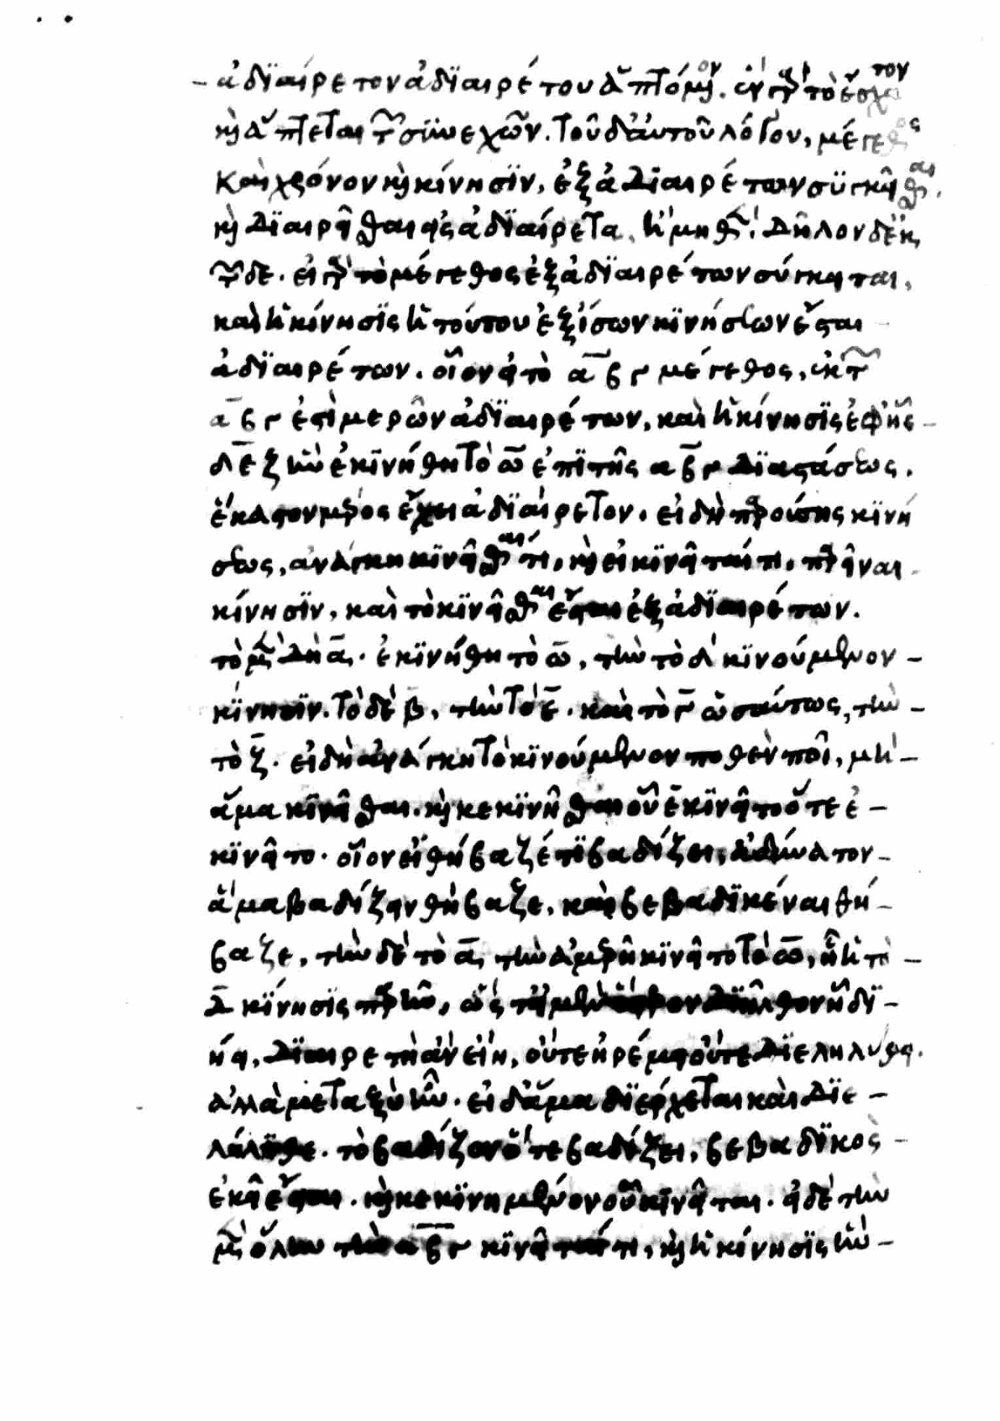 ἀδϊαίρετον ἀδϊαιρέτου ἁπτόμενον. οὐ γὰρ τὸ ἔσχατον
καὶ ἅπτεται τῶν συνεχῶν. τοῦ δ' αὐτοῦ λόγου, μέγεθος
καὶ χρόνον καὶ κίνησϊν, ἐξ ἀδϊαιρέτων συγκεῖσθαι,
καὶ δϊαιρεῖσθαι εἰς ἀδϊαίρετα, ἢ μηθέν. δῆλον δὲ ἐκ
τῶνδε. εἰ γὰρ τὸ μέγεθος ἐξ ἀδϊαιρέτων σύγκειται,
καὶ ἡ κίνησϊς ἡ τούτου ἐξ ἴσων κϊνήσεων ἔσται
ἀδϊαιρέτων. οἷον εἰ τὸ α β γ μέγεθος, ἐκ τῶν
α β γ ἐστὶ μερῶν ἀδϊαιρέτων, καὶ ἡ κίνησϊς ἐφ' ἧς
δ ε ζ ἣν ἐκϊνήθη τὸ ω ἐπὶ τῆς α β γ δϊαστάσεως,
ἕκαστον μέρος ἔχει ἀδϊαίρετον. εἰ δὴ παρούσης κϊνή
σεως, ἀνάγκη κϊνεῖσθαί τι, καὶ εἰ κϊνεῖταί τι, παρεῖναι
κίνησϊν, καὶ τὸ κϊνεῖσθαι ἔσται ἐξ ἀδϊαιρέτων.
τὸ μὲν δὴ α ἐκϊνήθη τὸ ω, τὴν τὸ δ κϊνούμενον
κίνησϊν. τὸ δὲ β, τὴν τὸ ε. καὶ τὸ γ ὡσαύτως, τὴν
τὸ ζ. εἰ δὴ ἀνάγκη τὸ κϊνούμενον ποθέν ποι, μὴ
ἅμα κϊνεῖσθαι καὶ κεκϊνῆσθαι οὗ ἐκϊνεῖτο ὅτε ἐ
κϊνεῖτο. οἷον εἰ θήβαζέ τϊ βαδίζει, ἀδύνατον
ἅμα βαδίζειν θήβαζε, καὶ βεβαδϊκέναι θή
βαζε, τὴν δὲ τὸ α, τὴν ἀμερῆ κϊνεῖτο τὸ ω, ᾗ ἡ τὸ
δ κίνησϊς παρῆν, ὥστ' εἰ μὲν ὕστερον δϊῆλθεν ἢ δϊ
ήει, δϊαιρετὴ ἂν εἴη, οὔτε ἠρέμει οὔτε δϊεληλύθει,
ἀλλὰ μεταξὺ ἦν. εἰ δ' ἅμα δϊέρχεται καὶ δϊε
λήλυθε, τὸ βαδίζον ὅτε βαδίζει, βεβαδϊκὸς
ἐκεῖ ἔσται. καὶ κεκϊνημένον οὗ κϊνεῖται. εἰ δὲ τὴν
μὲν ὅλην τὴν α β γ κϊνεῖταί τι, καὶ ἡ κίνησϊς ἣν